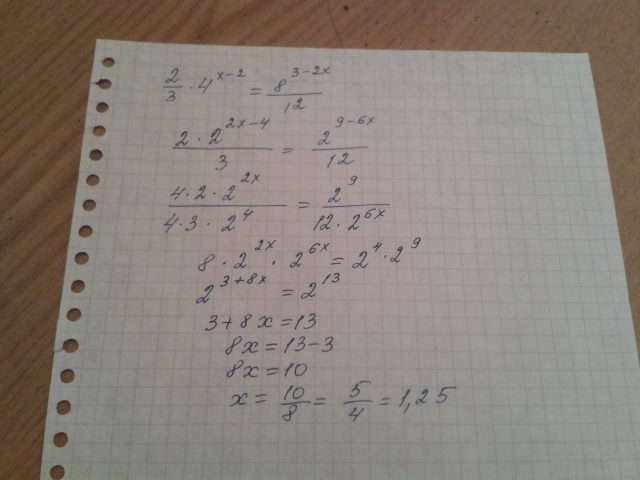 2/3 · 4^(x-2) = 8^(3-2x)/12
(2 · 2^(2x-4))/3 = 2^(9-6x)/12
(4 · 2 · 2^(2x))/(4 · 3 · 2^4) = 2^9/(12 · 2^(6x))
8 · 2^(2x) · 2^(6x) = 2^4 · 2^9
2^(3+8x) = 2^13
3 + 8x = 13
8x = 13-3
8x = 10
x = 10/8 = 5/4 = 1,25